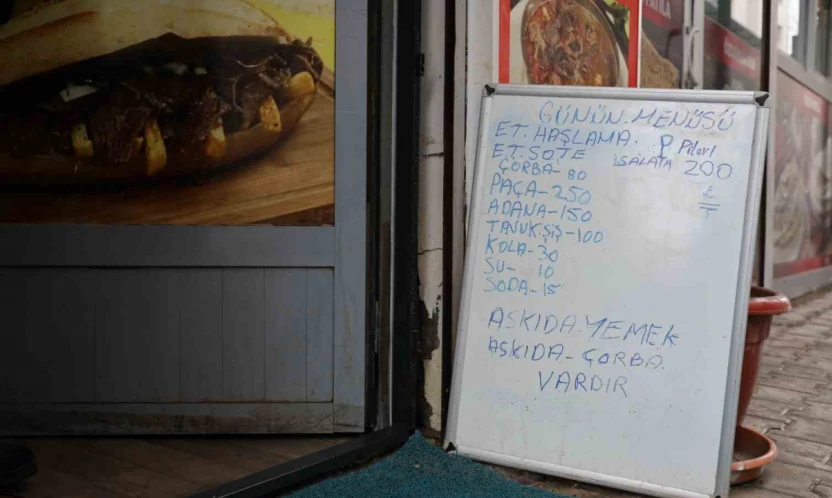 GÜNÜN MENÜSÜ
ET. HAŞLAMA. P Pilavl
ET. SOTE SALATA 200
ÇORBA- 80 ₺
PAÇA-250
ADANA-150
TAVUK ŞİŞ-100
KOLA-30
SU- 10
SODA-15
ASKIDA-YEMEK
ASKIDA-ÇORBA.
VARDIR